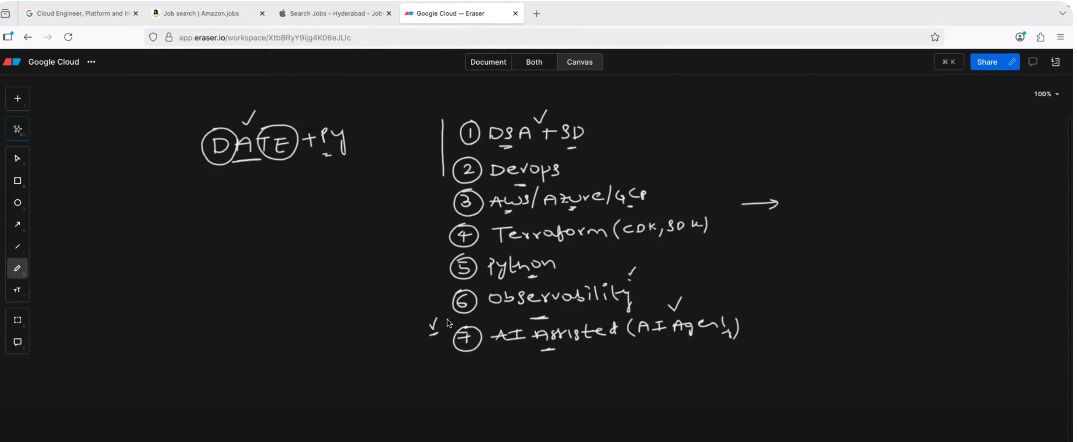 Cloud Engineer, Platform and In
Job search | Amazon.jobs
Search Jobs - Hyderabad - Job
Google Cloud — Eraser
app.eraser.io/workspace/XtbBRyY9ijg4K06eJLlc
Google Cloud
Document Both Canvas
⌘ K
Share
100%
DATE + Py
1 DSA + SD
2 Devops
3 AWS/Azure/GCP
4 Terraform (CDK, SDK)
5 Python
6 Observability
7 AI Assisted (AI Agent)